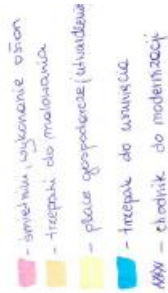 - śmietniki, wykonanie osłon
- trzepaki do malowania
- place gospodarcze/utwardzone
- trzepak do usunięcia
- chodnik do modernizacji